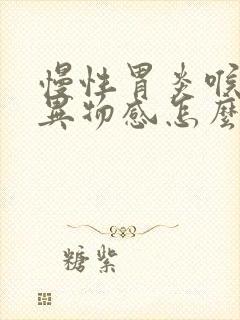 慢性胃炎喉
異物感怎麼
糖紫